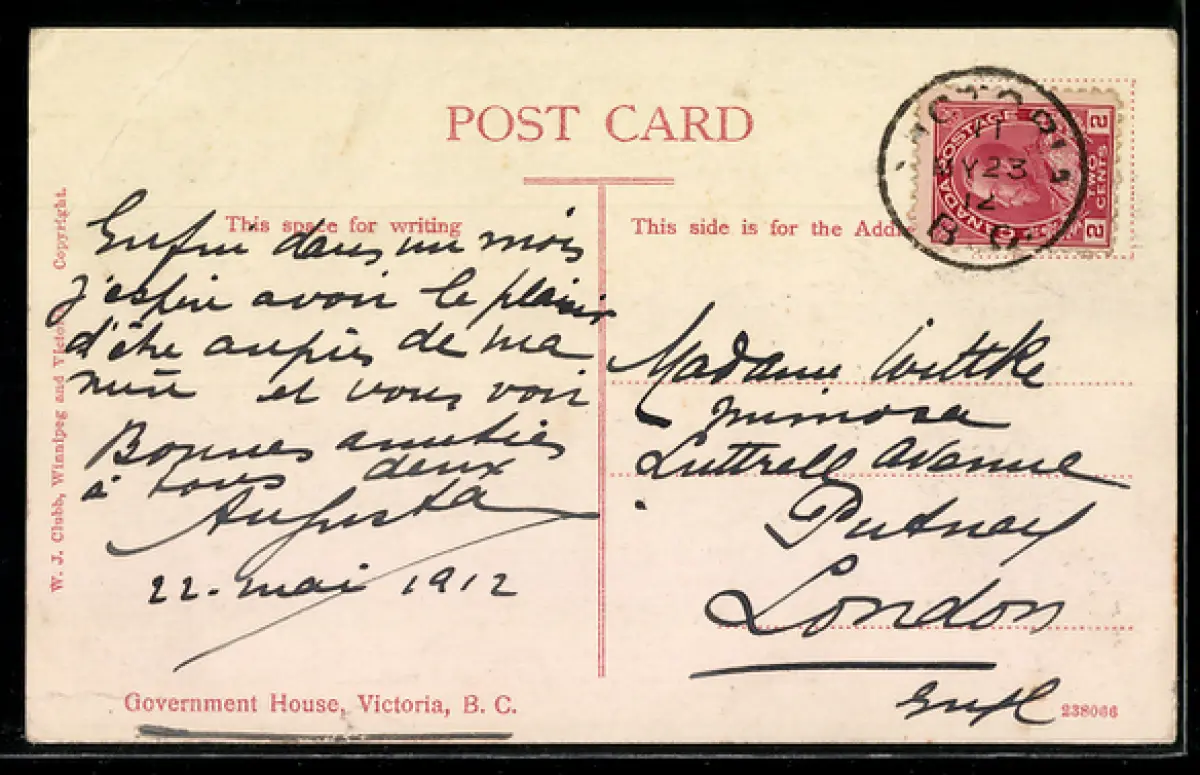 POST CARD
This space for writing
Enfin dans un mois
j'espère avoir le plaisir
d'être auprès de ma
mère et vous voir
Bonnes amitiés
à tous deux
Augusta
22. mai 1912
Government House, Victoria, B. C.
W. J. Clubb, Winnipeg and Victoria. Copyright.
This side is for the Addre
VICTORIA
17
MY 23
12
B.C.
CANADA POSTAGE
2 TWO CENTS 2
Madame Wittke
Mimosa
Luttrell Avenue
Putney
London
Engl
238066